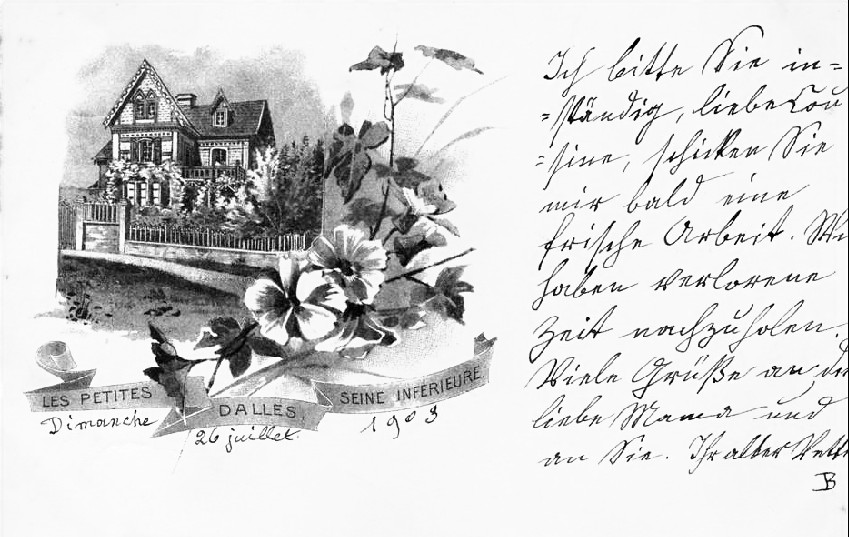 LES PETITES DALLES, SEINE INFÉRIEURE
Dimanche 26 juillet. 1903
Ich bitte Sie in=
=ständig, liebe Cou
=sine, schicken Sie
mir bald eine
frische Arbeit. Wi
haben verlorene
Zeit nachzuholen.
Viele Grüße an di
liebe Mama und
an Sie. Ihr alter Vette
B